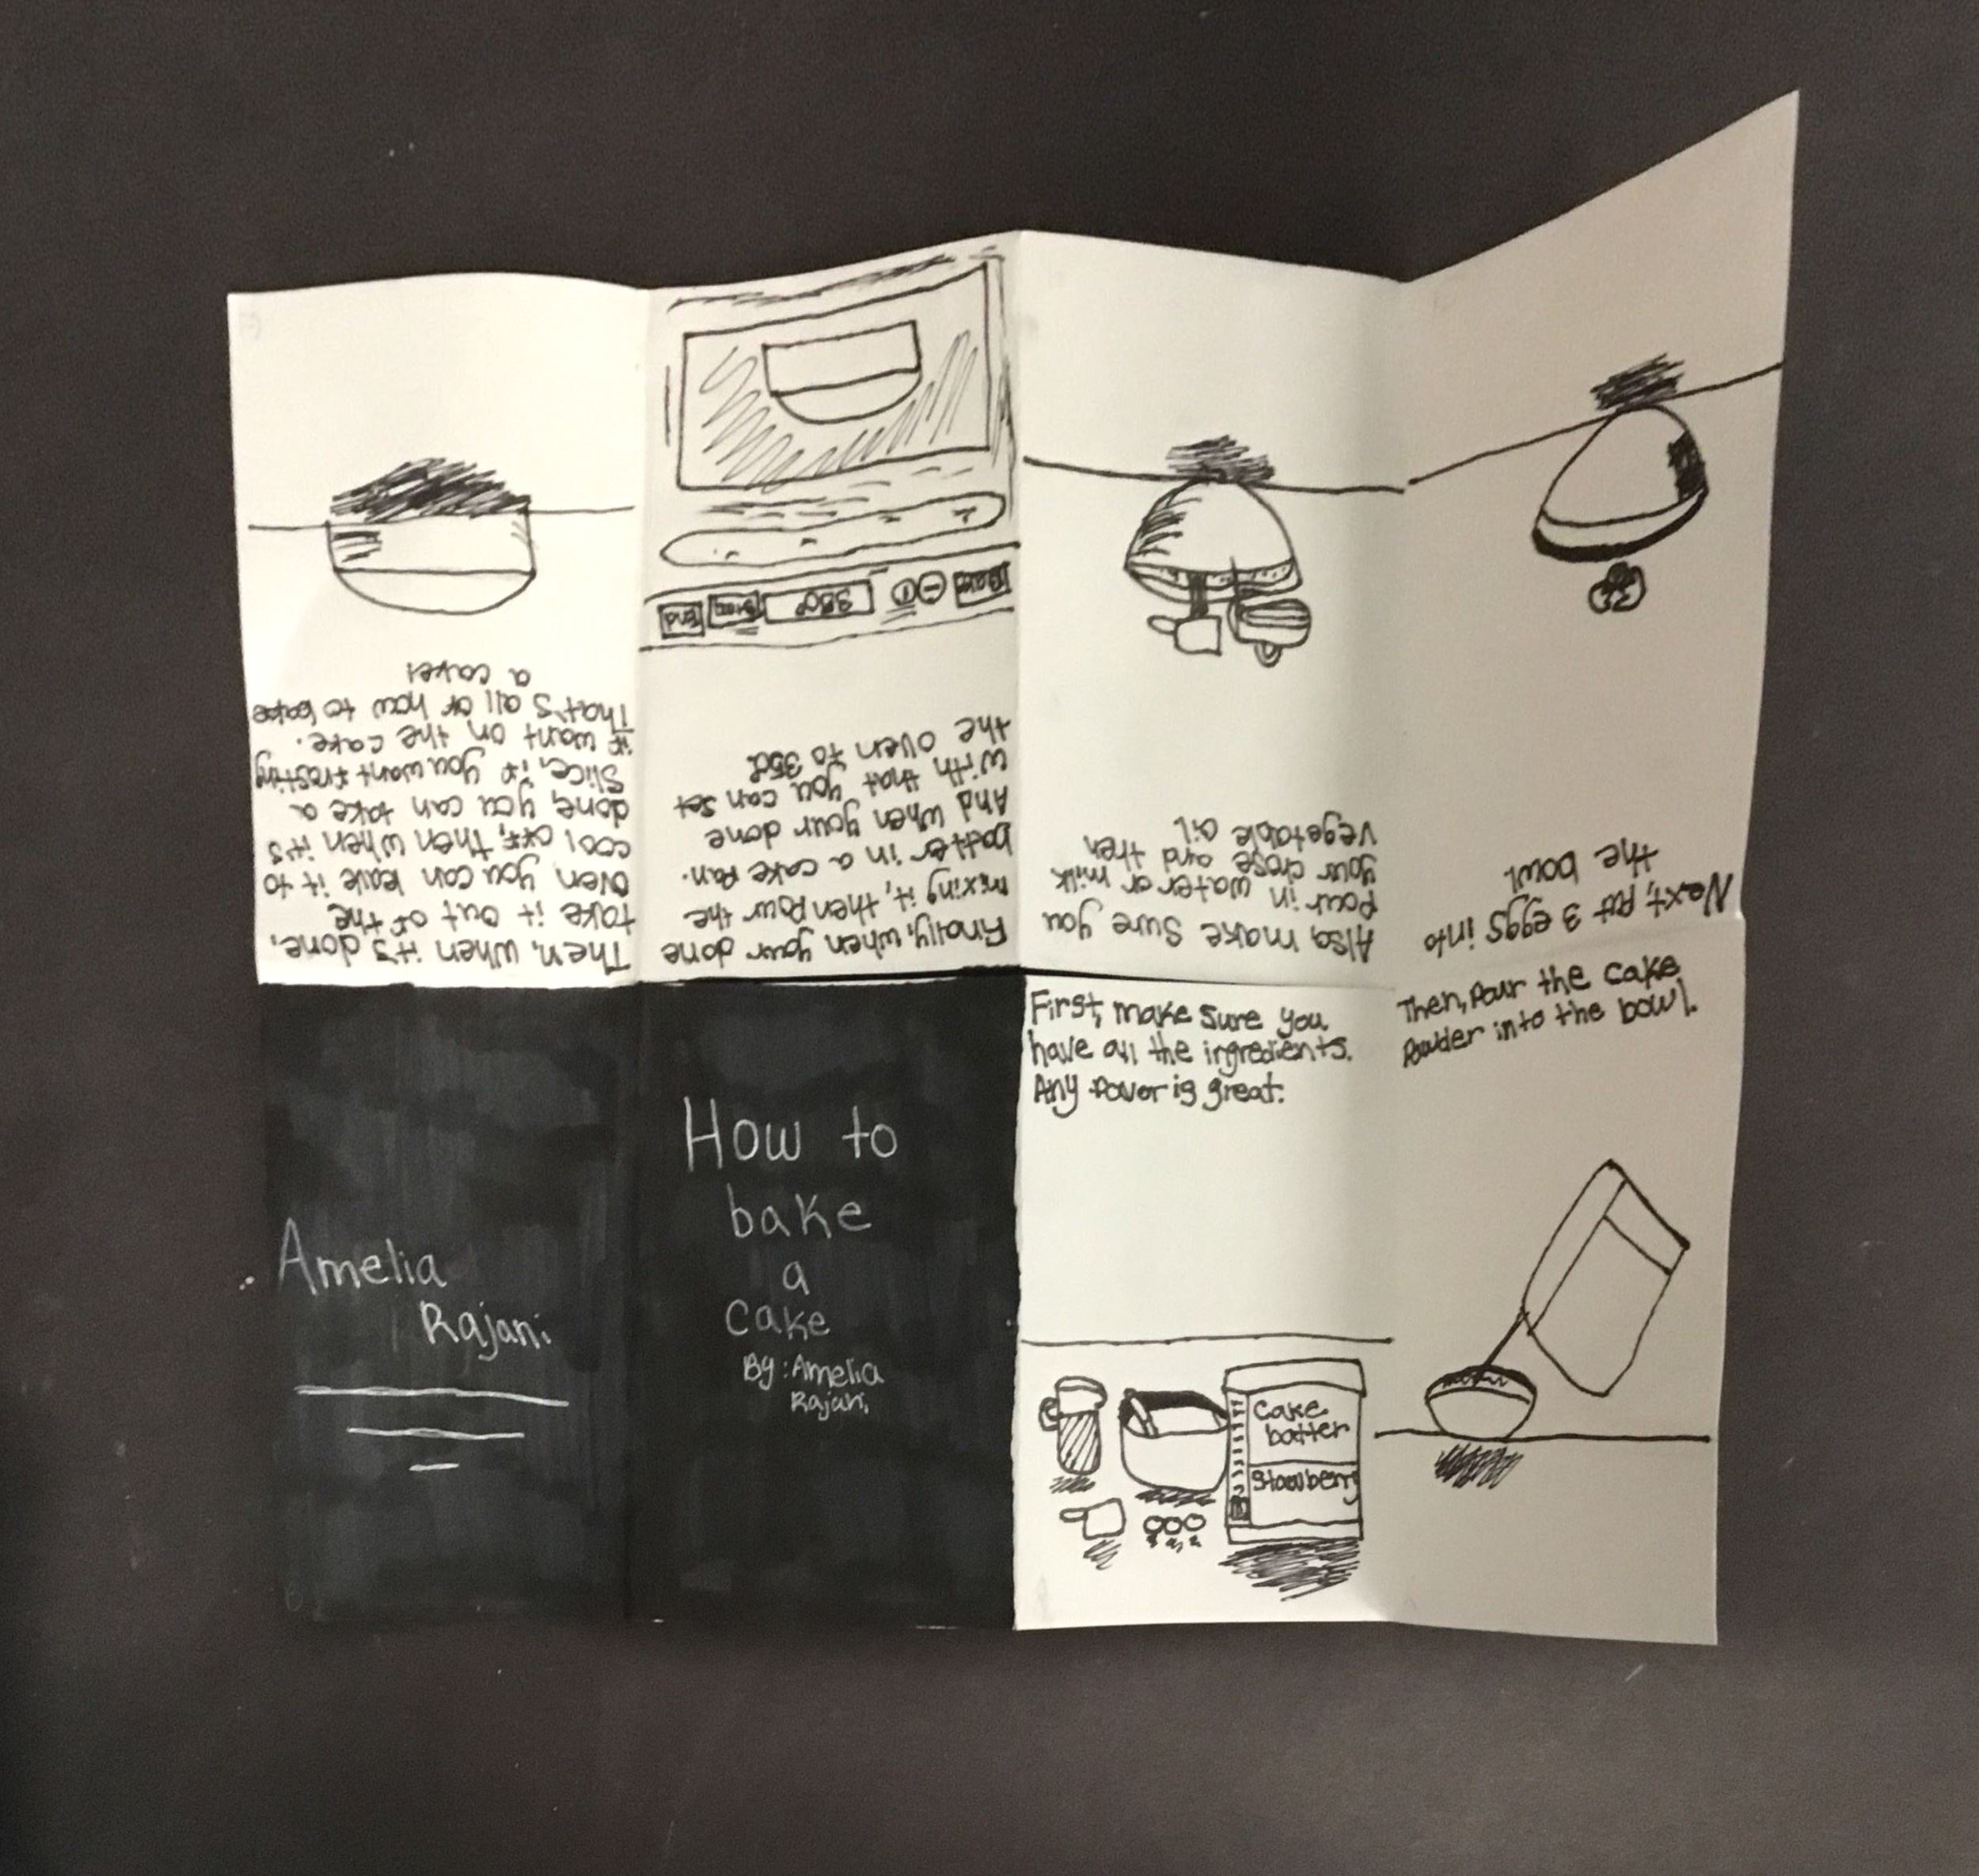 How to
bake
a
cake
By: Amelia
Rajani
First, make sure you
have all the ingredients.
Any flavor is great.
Cake
batter
Then, Pour the cake
Powder into the bowl.
Next, put 3 eggs into
the bowl
Also, make sure you
pour in water or milk
your chose and then
vegetable oil
Finally, when your done
mixing it, then pour the
batter in a cake pan.
And when your done
with that you can set
the oven to 350°
350°
End
Then, when it's done,
take it out of the
oven you can leave it to
cool off, then when it's
done, you can take a
Slice, if you want frosting
it want on the cake.
That's all of how to bake
a cake!
Amelia
Rajani